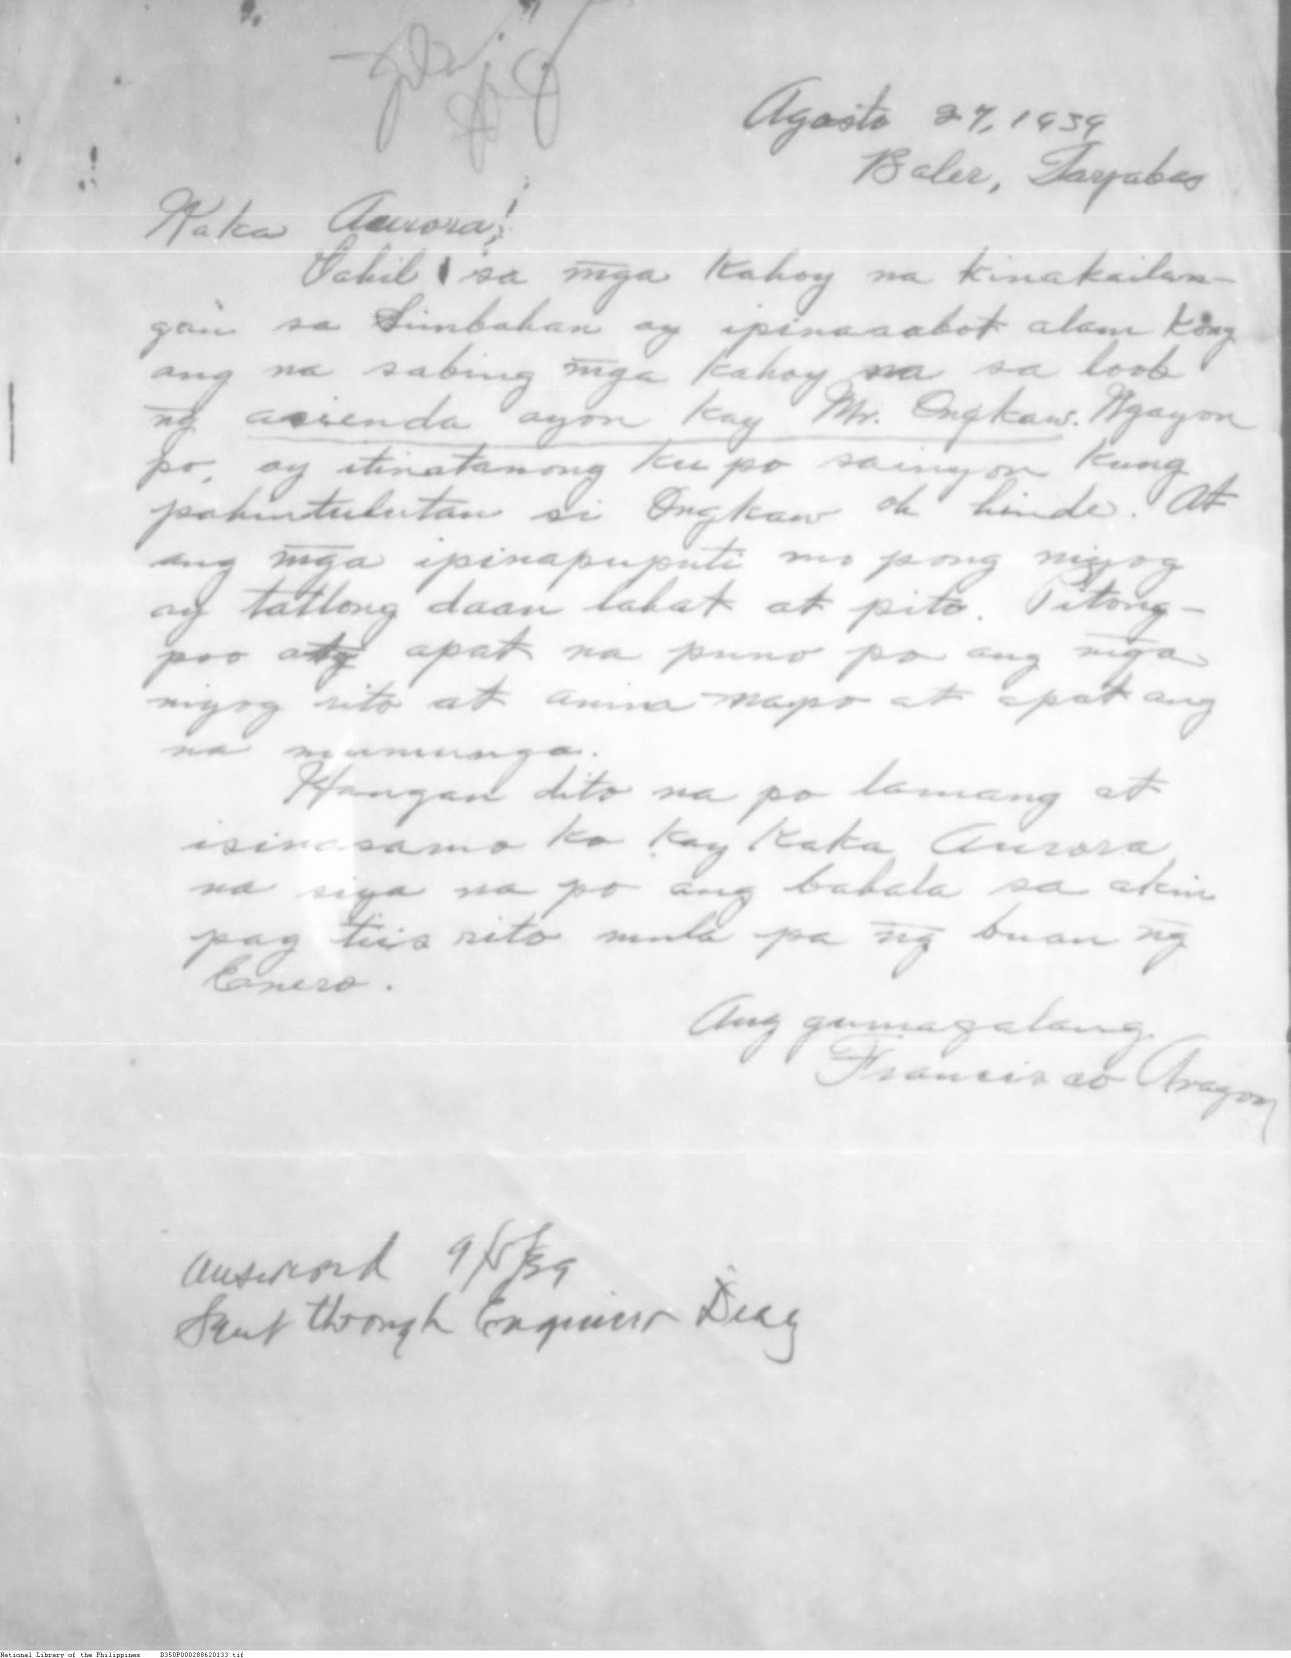 Agosto 27, 1939
Baler, Tayabas
Kaka Aurora;!
Dahil sa mga kahoy na kinakailan-
gan sa Simbahan ay ipinaaabot alam kong
ang na sabing mga kahoy na sa loob
ng acienda ayon kay Mr. Ongkaw. Ngayon
po, ay itinatanong ku po sainyon kung
pahintulutan si Ongkaw oh hinde. At
ang mga ipinapuputi mo pong niyog
ay tatlong daan lahat at pito. Pitong-
poo at apat na puno po ang mga
niyog rito at anima napo at apat ang
na mumunga.
Hangan dito na po lamang at
isinasamo ko kay Kaka Aurora
na siya na po ang bahala sa akin
pag tiis rito mula pa ng buan ng
Enero.
Ang gumagalang
Francisco Aragon
Answered 9/5/39
Sent through Engineer Diaz
National Library of the Philippines B350P000288620133.tif